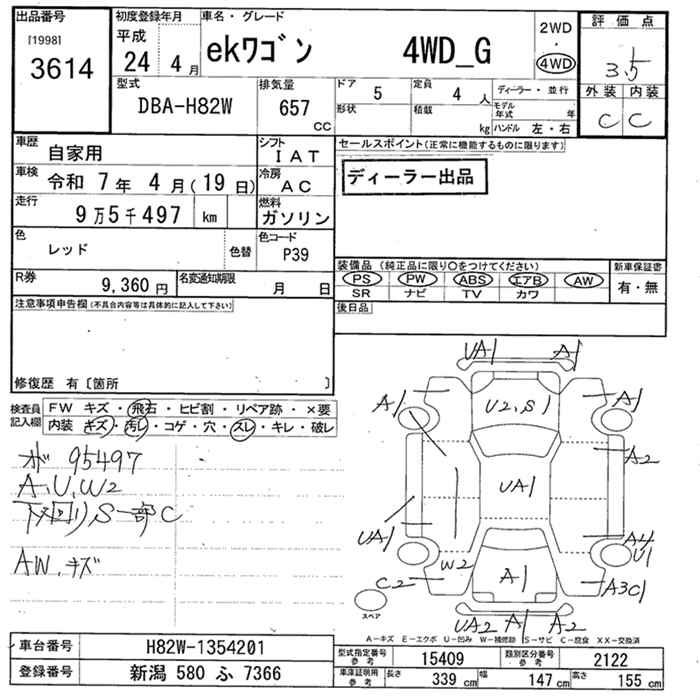 出品番号
[1998]
3614
初度登録年月
平成
24 年 4 月
車名・グレード
ekワゴン 4WD_G
2WD
・
4WD
評価点
3.5
外装 内装
C C
型式
DBA-H82W
排気量
657
cc
ドア
5
定員
4 人
形状
積載
kg
ディーラー・並行
モデル年式 年
ハンドル 左・右
車歴
自家用
シフト
IAT
車検
令和 7年 4月(19日)
冷房
AC
走行
9万5千497 km
燃料
ガソリン
色
レッド
色替
色コード
P39
R券
9,360 円
名変通知期限
月 日
セールスポイント(正常に機能するものに限ります)
ディーラー出品
装備品 (純正品に限り○をつけてください)
PS PW ABS エアB AW
SR ナビ TV カワ
新車保証書
有・無
後日品
注意事項申告欄(不具合内容等は具体的に記入して下さい)
修復歴 有〔箇所 〕
検査員記入欄
FW キズ・飛石・ヒビ割・リペア跡・×要
内装 キズ・汚レ・コゲ・穴・スレ・キレ・破レ
オド 95497
A,U,W2
下回りS一部C
AW,キズ
UA1 A1
U2,S1
A1 A1
A2
UA1
UA1
A4
U1
W2
A1
C2
A3C1
UA2 A1 A2
スペア
A-キズ E-エクボ U-凹み W-補修跡 S-サビ C-腐食 XX-交換済
車台番号
H82W-1354201
登録番号
新潟 580 ふ 7366
型式指定番号
参考
15409
類別区分番号
参考
2122
車庫証明用
参考
長さ 339 cm
幅 147 cm
高さ 155 cm